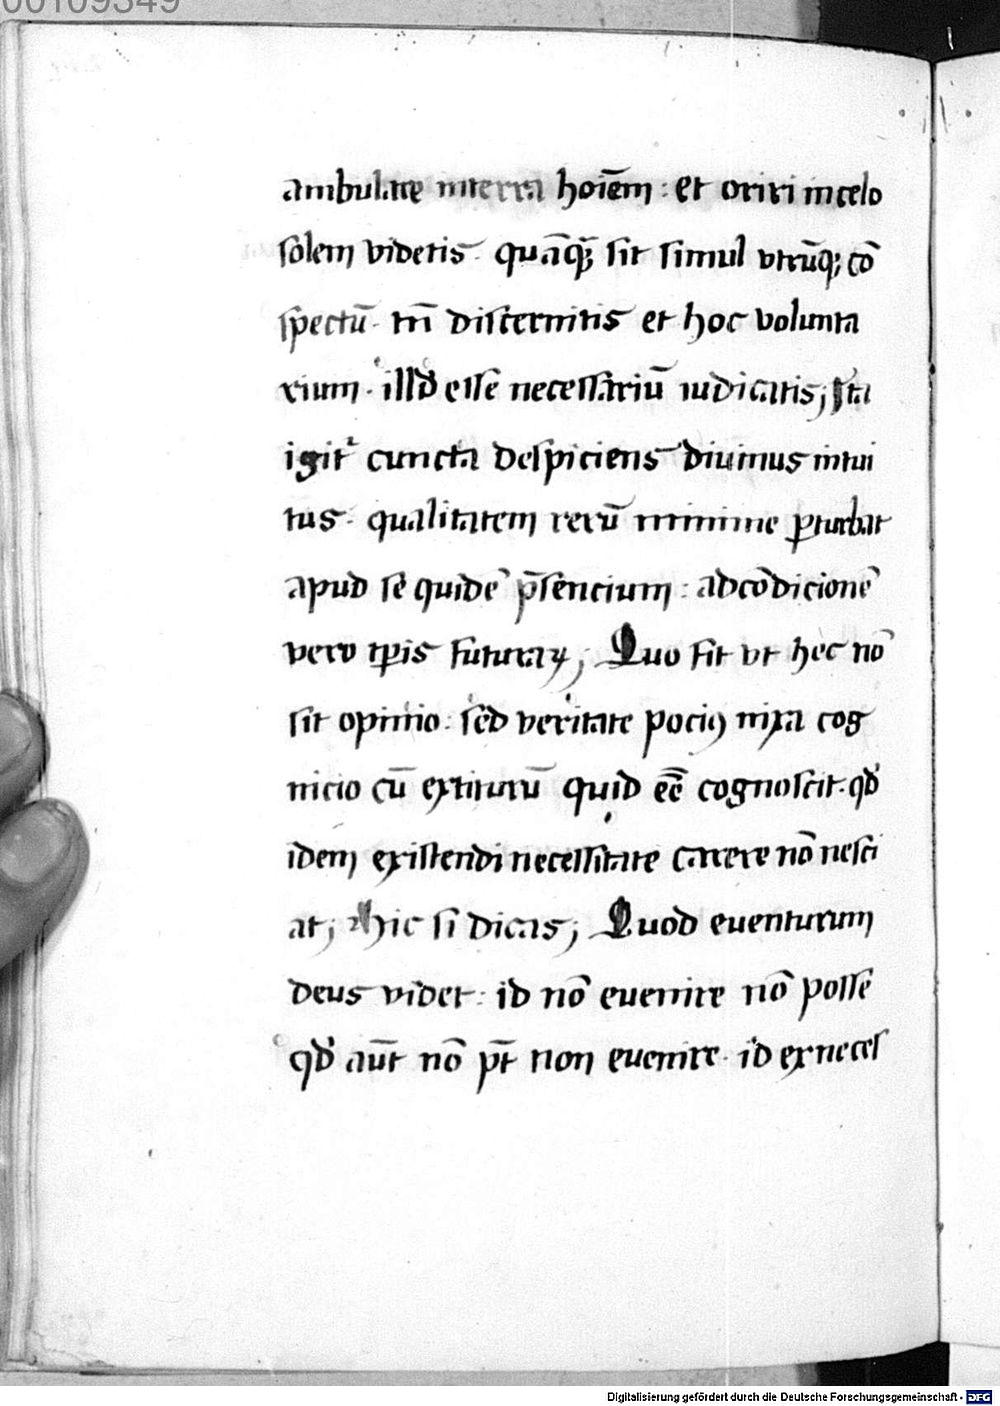 00109349
ambulare in terra hoiēm : et oriri in celo
solem videtis · quāqꝫ̄ sit simul vtrūqꝫ cō
spectū · tn̄ discernitis et hoc volunta
rium · illđ esse necessariū iudicatis; Ita
igitᷣ cuncta despiciens diuinus intui
tus · qualitatem rerū minime ꝑturbat
apud se quidē p̄sencium : ad cōdicionē
vero tꝑis futuraꝝ; Quo fit vt hec nō
sit opinio : sed veritate pociꝰ nixa cog
nicio cū extiturū quid eē̄ cognoscit · qđ
idem existendi necessitate carere nō nesci
at; Hic si dicas; Quod euenturum
deus videt : id nō euenire nō posse
qđ aūt nō pt̄ non euenire · id ex neces
Digitalisierung gefördert durch die Deutsche Forschungsgemeinschaft - DFG